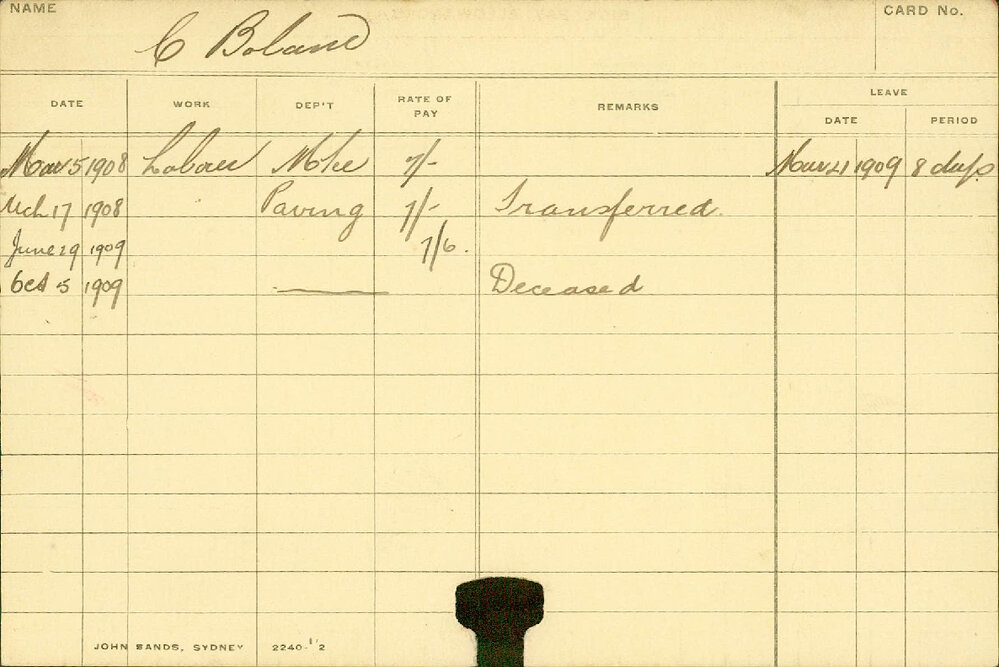 NAME C Boland CARD No.
DATE WORK DEP'T RATE OF PAY REMARKS LEAVE DATE PERIOD
Mar 5 1908 Laborer 7/- Mar 21 1909 8 days
Mch 17 1908 " Paving 7/- Transferred.
June 29 1909 7/6.
Oct 5 1909 Deceased
JOHN SANDS, SYDNEY 2240-1/2